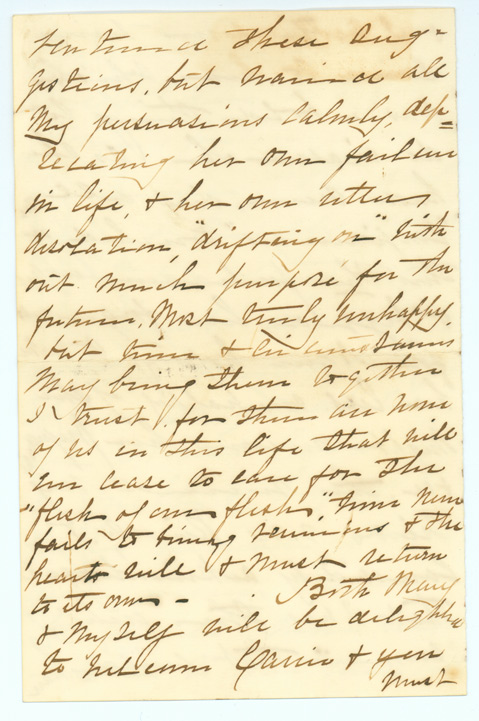 these sug-
gestions, but waived all
my persuasions calmly, dep=
recating her own failure
in life, & her own utter
desolation, "drifting on" with
out much purpose for the
future. Most truly unhappy,
but time & circumstances
may bring them together
I trust, for there are none
of us in this life that will
ever cease to care for the
"flesh of our flesh" time never
fails to bring reunions & the
hearts will & must return
to its own - Both Mary
& myself will be delighted
to welcome Carrie & you
must